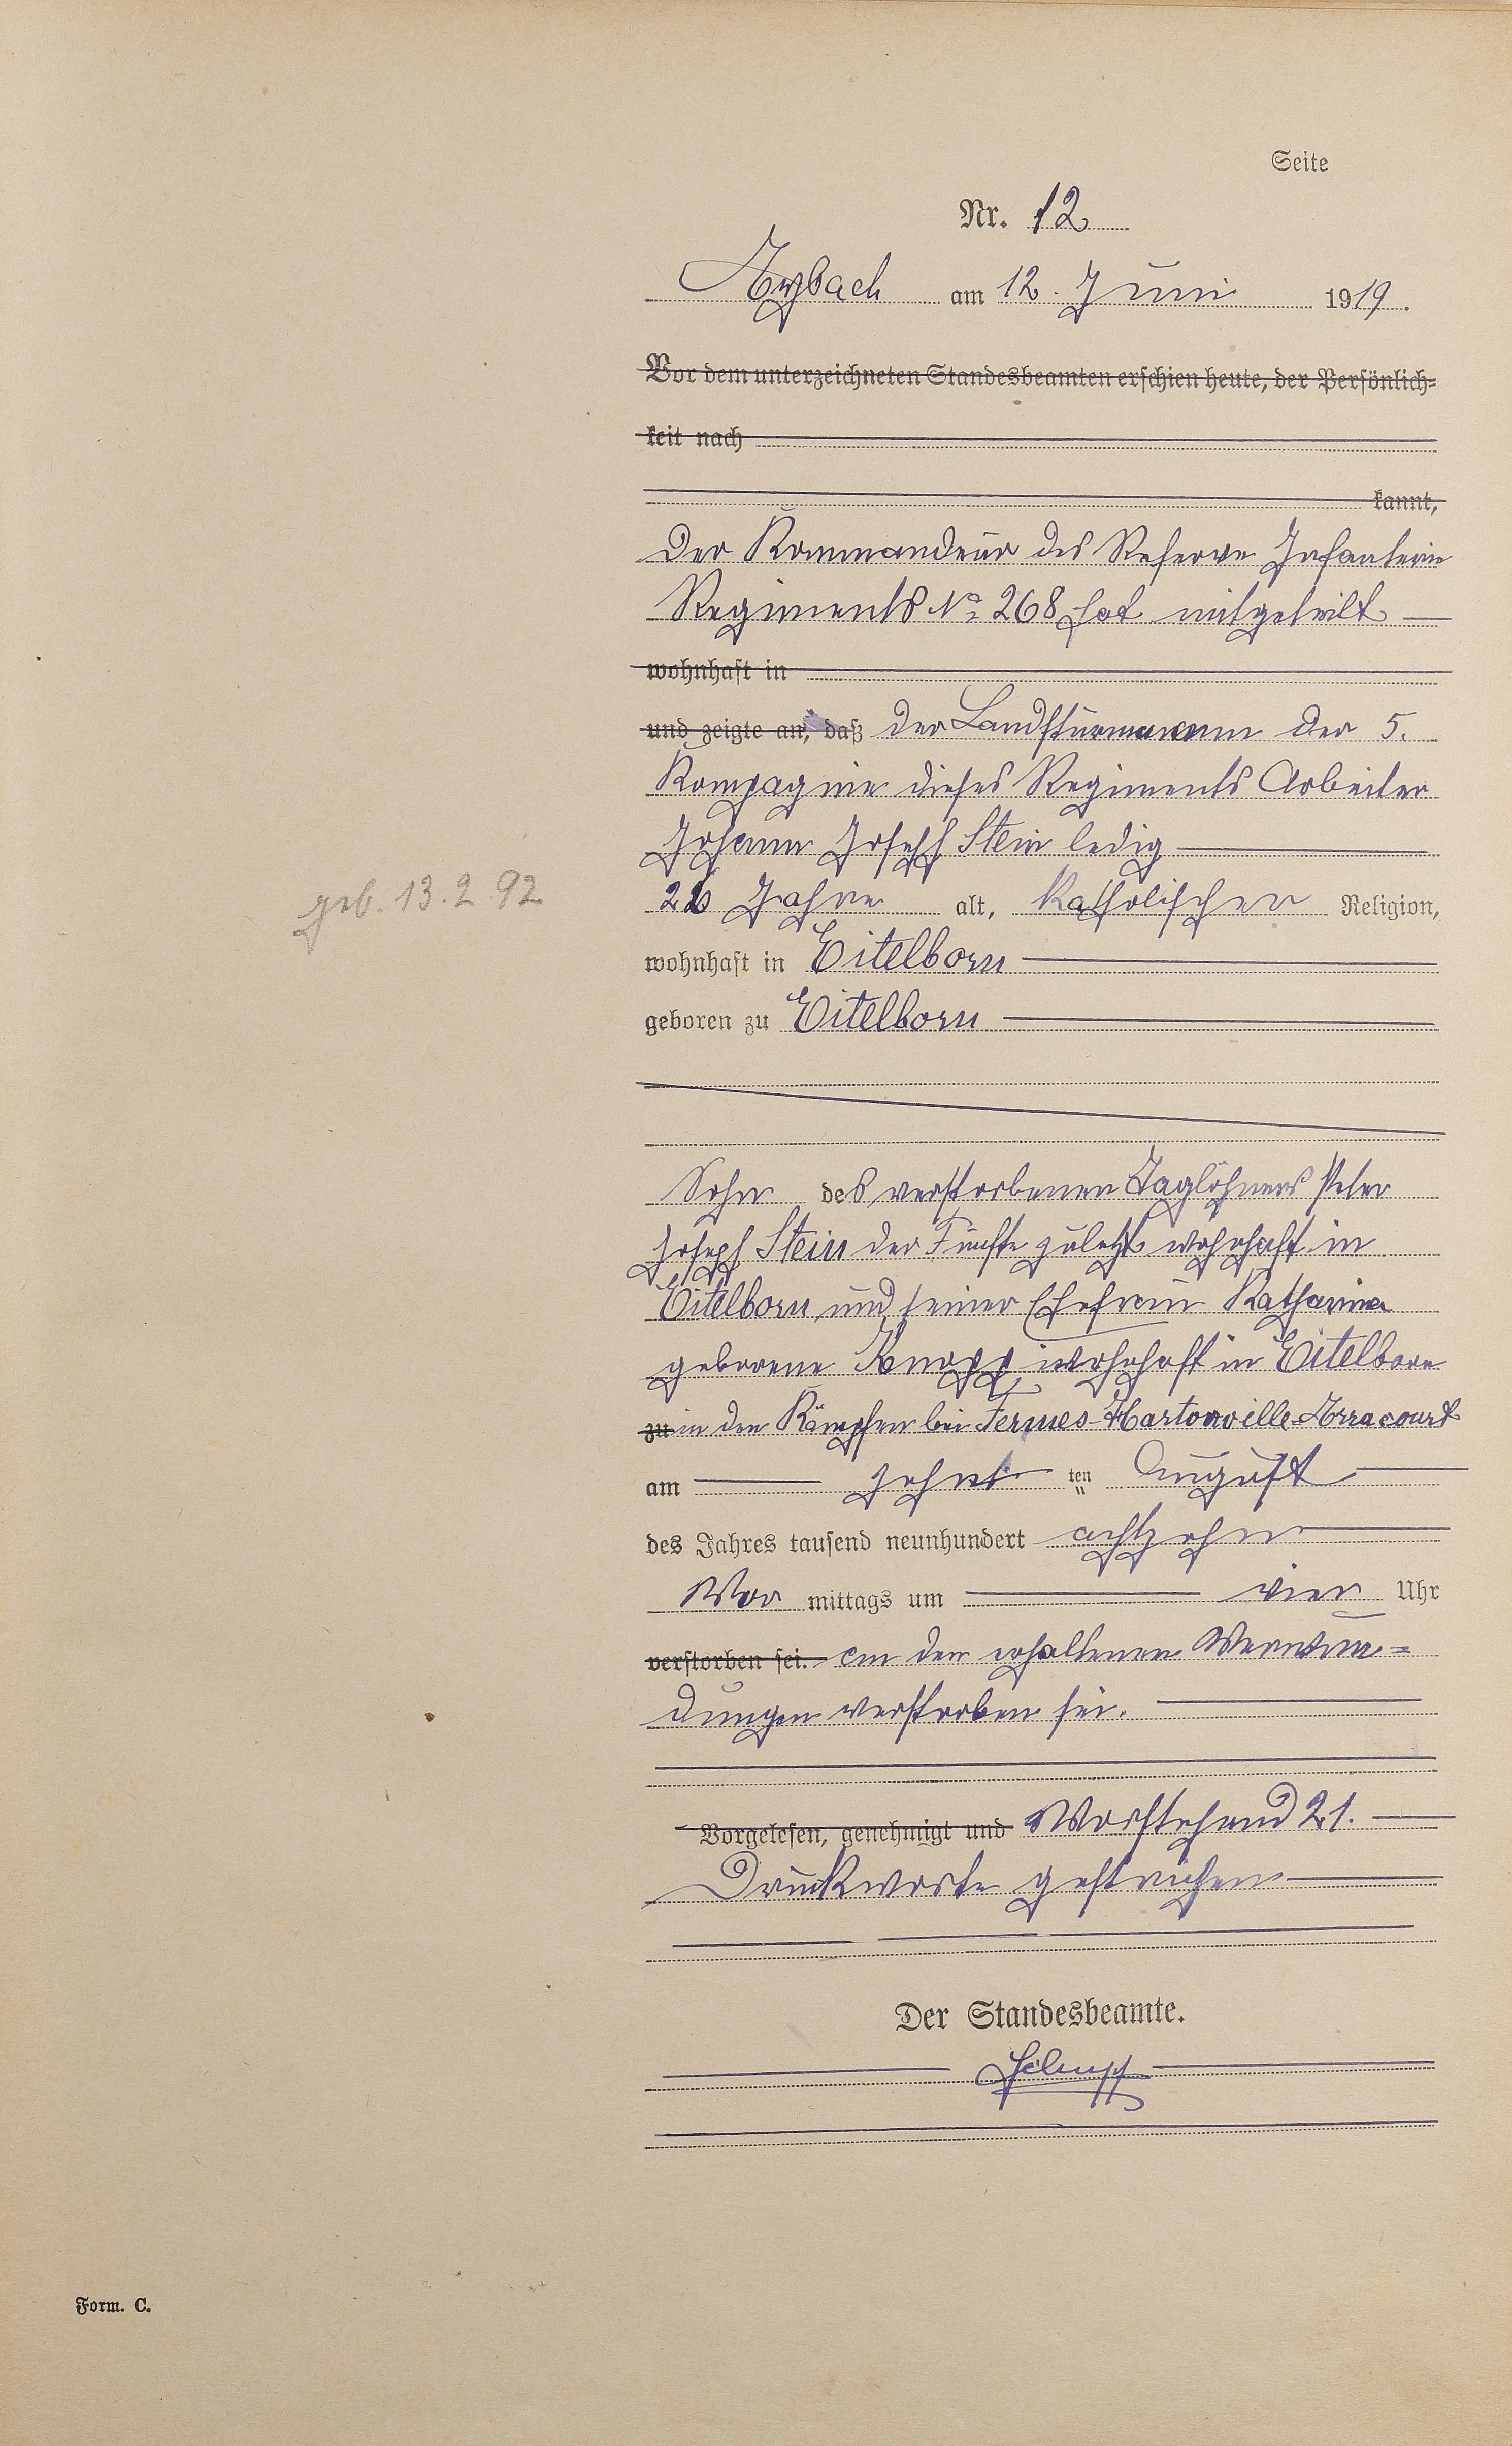 Seite
Nr. 12
Arzbach am 12. Juni 1919.
Vor dem unterzeichneten Standesbeamten erschien heute, der Persönlich=
keit nach
kannt,
Der Kommandeur des Reserve Infanterie
Regiments No 268 hat mitgeteilt
wohnhaft in
und zeigte an, daß der Landsturmmann der 5.
Kompagnie dieses Regiments Arbeiter
Johann Joseph Stein ledig
geb. 13. 2 92
26 Jahre alt, Katholischer Religion,
wohnhaft in Eitelborn
geboren zu Eitelborn
Sohn des verstorbenen Taglöhners Peter
Joseph Stein der Fünfte zuletzt wohnhaft in
Eitelborn und seiner Ehefrau Katharina
geborene Knopp, wohnhaft in Eitelborn
zu in den Kämpfen bei Fermes-Hartonville-Arracourt
am zehnten August
des Jahres tausend neunhundert achtzehn
Vor mittags um vier Uhr
verstorben sei. an den erhaltenen Verwun=
dungen verstorben sei.
Vorgelesen, genehmigt und Vorstehend 21.
Druckworte gestrichen
Der Standesbeamte.
Form. C.